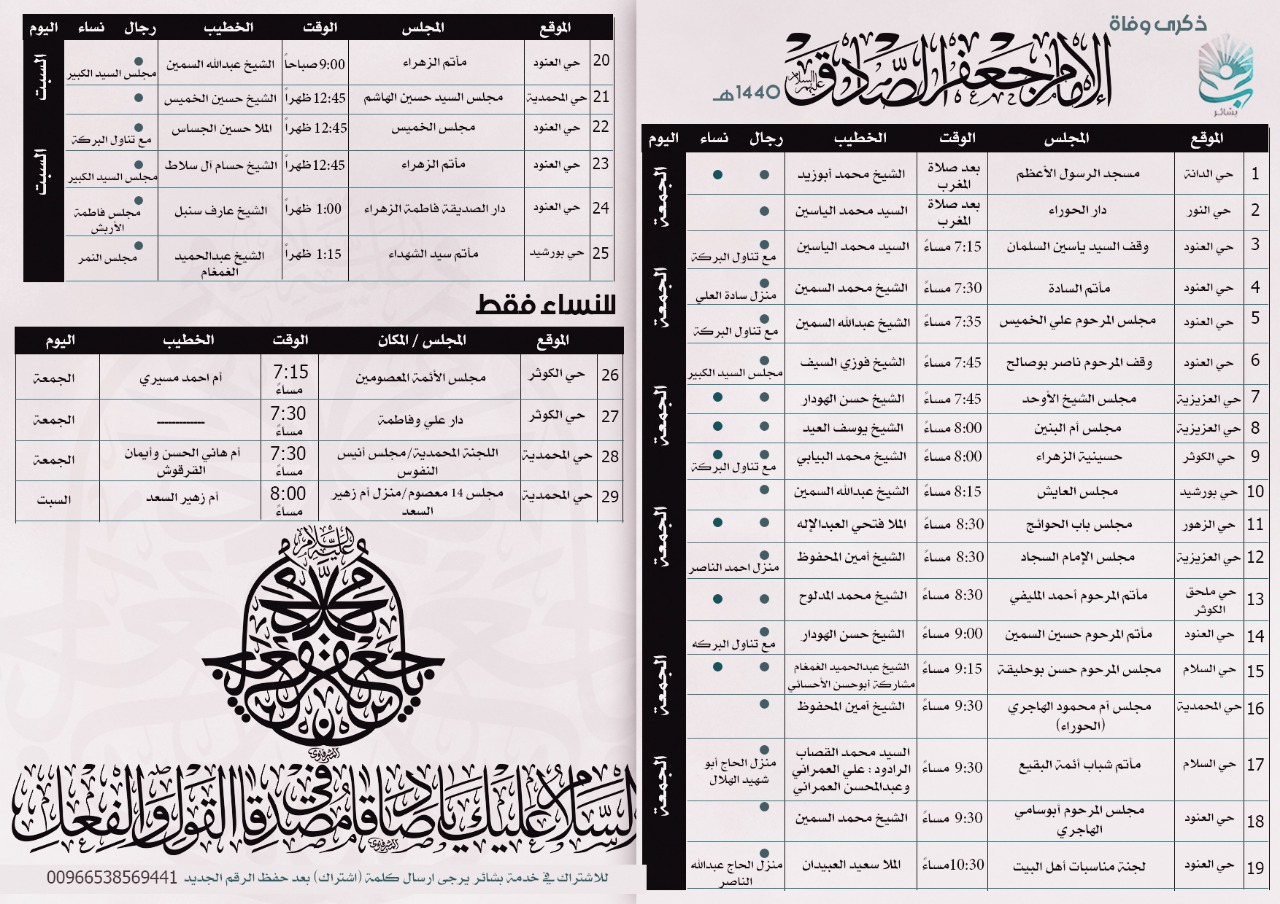 ذكرى وفاة
الإمام جعفر الصادق عليه السلام
1440هـ
بشائر
الموقع المجلس الوقت الخطيب رجال نساء اليوم
1 حي الدانة مسجد الرسول الأعظم بعد صلاة المغرب الشيخ محمد أبوزيد الجمعة
2 حي النور دار الحوراء بعد صلاة المغرب السيد محمد الياسين
3 حي العنود وقف السيد ياسين السلمان 7:15 مساءً السيد محمد الياسين مع تناول البركة
4 حي العنود مأتم السادة 7:30 مساءً الشيخ محمد السمين منزل سادة العلي الجمعة
5 حي العنود مجلس المرحوم علي الخميس 7:35 مساءً الشيخ عبدالله السمين مع تناول البركة
6 حي العنود وقف المرحوم ناصر بوصالح 7:45 مساءً الشيخ فوزي السيف مجلس السيد الكبير
7 حي العزيزية مجلس الشيخ الأوحد 7:45 مساءً الشيخ حسن الهودار الجمعة
8 حي العزيزية مجلس أم البنين 8:00 مساءً الشيخ يوسف العيد
9 حي الكوثر حسينية الزهراء 8:00 مساءً الشيخ محمد البيابي مع تناول البركة
10 حي بورشيد مجلس العايش 8:15 مساءً الشيخ عبدالله السمين
11 حي الزهور مجلس باب الحوائج 8:30 مساءً الملا فتحي العبدالإله الجمعة
12 حي العزيزية مجلس الإمام السجاد 8:30 مساءً الشيخ أمين المحفوظ منزل احمد الناصر
13 حي ملحق الكوثر مأتم المرحوم أحمد المليفي 8:30 مساءً الشيخ محمد المدلوح
14 حي العنود مأتم المرحوم حسين السمين 9:00 مساءً الشيخ حسن الهودار مع تناول البركه
15 حي السلام مجلس المرحوم حسن بوحليقة 9:15 مساءً الشيخ عبدالحميد الغمغام مشاركة أبوحسن الأحسائي الجمعة
16 حي المحمدية مجلس أم محمود الهاجري (الحوراء) 9:30 مساءً الشيخ أمين المحفوظ
17 حي السلام مأتم شباب أئمة البقيع 9:30 مساءً السيد محمد القصاب الرادود : علي العمراني وعبدالمحسن العمراني منزل الحاج أبو شهيد الهلال الجمعة
18 حي العنود مجلس المرحوم أبوسامي الهاجري 9:30 مساءً الشيخ محمد السمين
19 حي العنود لجنة مناسبات أهل البيت 10:30مساءً الملا سعيد العبيدان منزل الحاج عبدالله الناصر
الموقع المجلس الوقت الخطيب رجال نساء اليوم
20 حي العنود مأتم الزهراء 9:00 صباحاً الشيخ عبدالله السمين مجلس السيد الكبير السبت
21 حي المحمدية مجلس السيد حسين الهاشم 12:45 ظهراً الشيخ حسين الخميس
22 حي العنود مجلس الخميس 12:45 ظهراً الملا حسين الجساس مع تناول البركة
23 حي العنود مأتم الزهراء 12:45 ظهراً الشيخ حسام آل سلاط مجلس السيد الكبير السبت
24 حي العنود دار الصديقة فاطمة الزهراء 1:00 ظهراً الشيخ عارف سنبل مجلس فاطمة الأربش
25 حي بورشيد مأتم سيد الشهداء 1:15 ظهراً الشيخ عبدالحميد الغمغام مجلس النمر
للنساء فقط
الموقع المجلس / المكان الوقت الخطيب اليوم
26 حي الكوثر مجلس الأئمة المعصومين 7:15 مساءً أم احمد مسيري الجمعة
27 حي الكوثر دار علي وفاطمة 7:30 مساءً ------------ الجمعة
28 حي المحمدية اللجنة المحمدية/مجلس أنيس النفوس 7:30 مساءً أم هاني الحسن وأيمان القرقوش الجمعة
29 حي المحمدية مجلس 14 معصوم/منزل أم زهير السعد 8:00 مساءً أم زهير السعد السبت
عليه السلام
السلام عليك يا صادقا مصدقا في القول والفعل
للاشتراك في خدمة بشائر يرجى ارسال كلمة (اشتراك) بعد حفظ الرقم الجديد 00966538569441